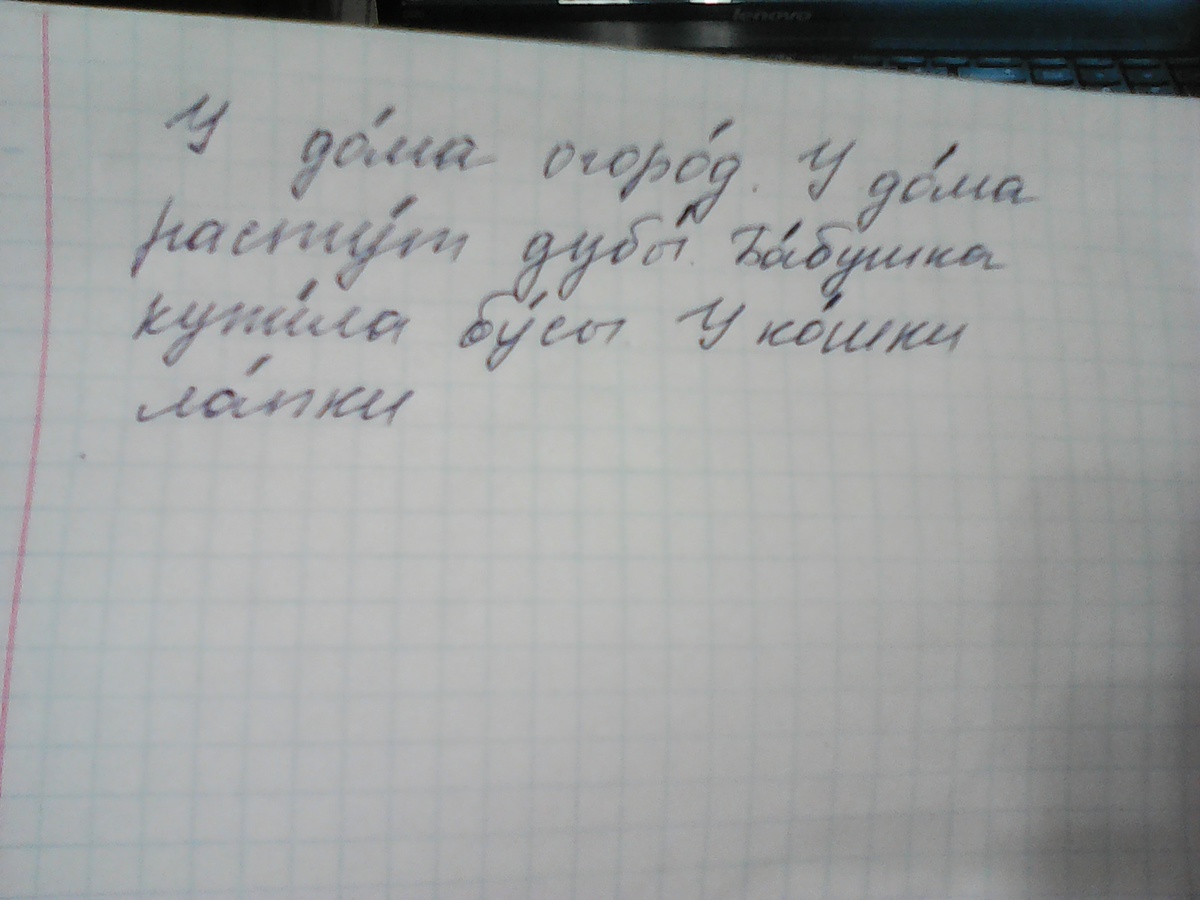 lenovo
У до́ма огоро́д. У до́ма
расту́т дубы́. Ба́бушка
купи́ла бу́сы. У ко́шки
ла́пки